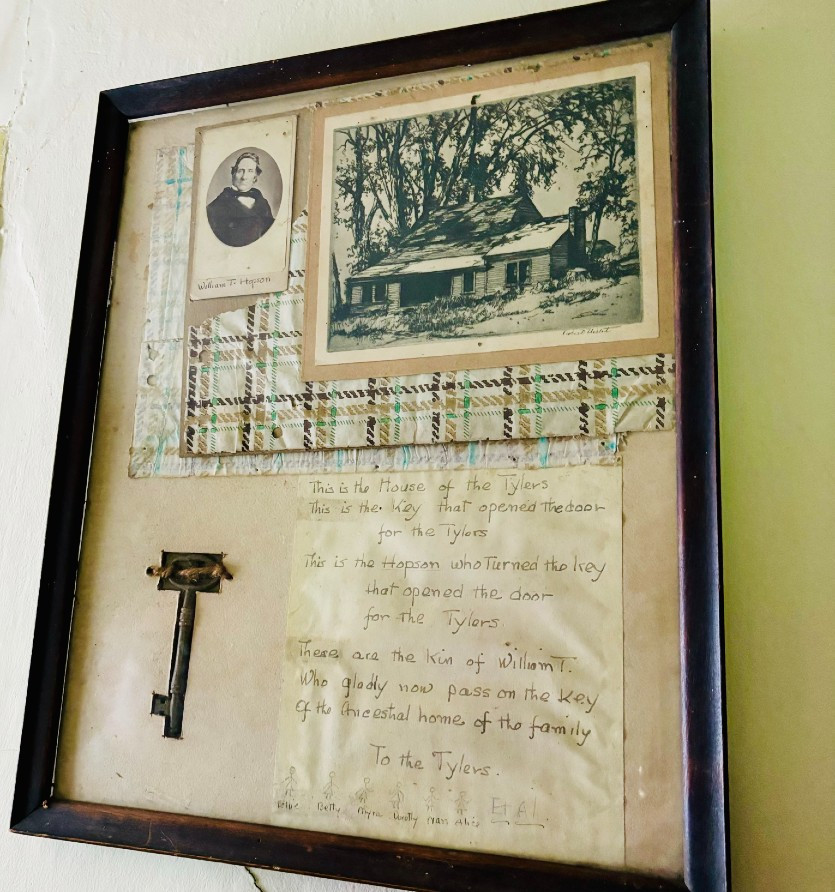 William T. Hopson
This is the House of the Tylers
This is the Key that opened the door
for the Tylers
This is the Hopson who Turned the key
that opened the door
for the Tylers
These are the Kin of William T.
Who gladly now pass on the Key
Of the Ancestral home of the family
To the Tylers.
Betty Myra Dorothy Alice Et Al.